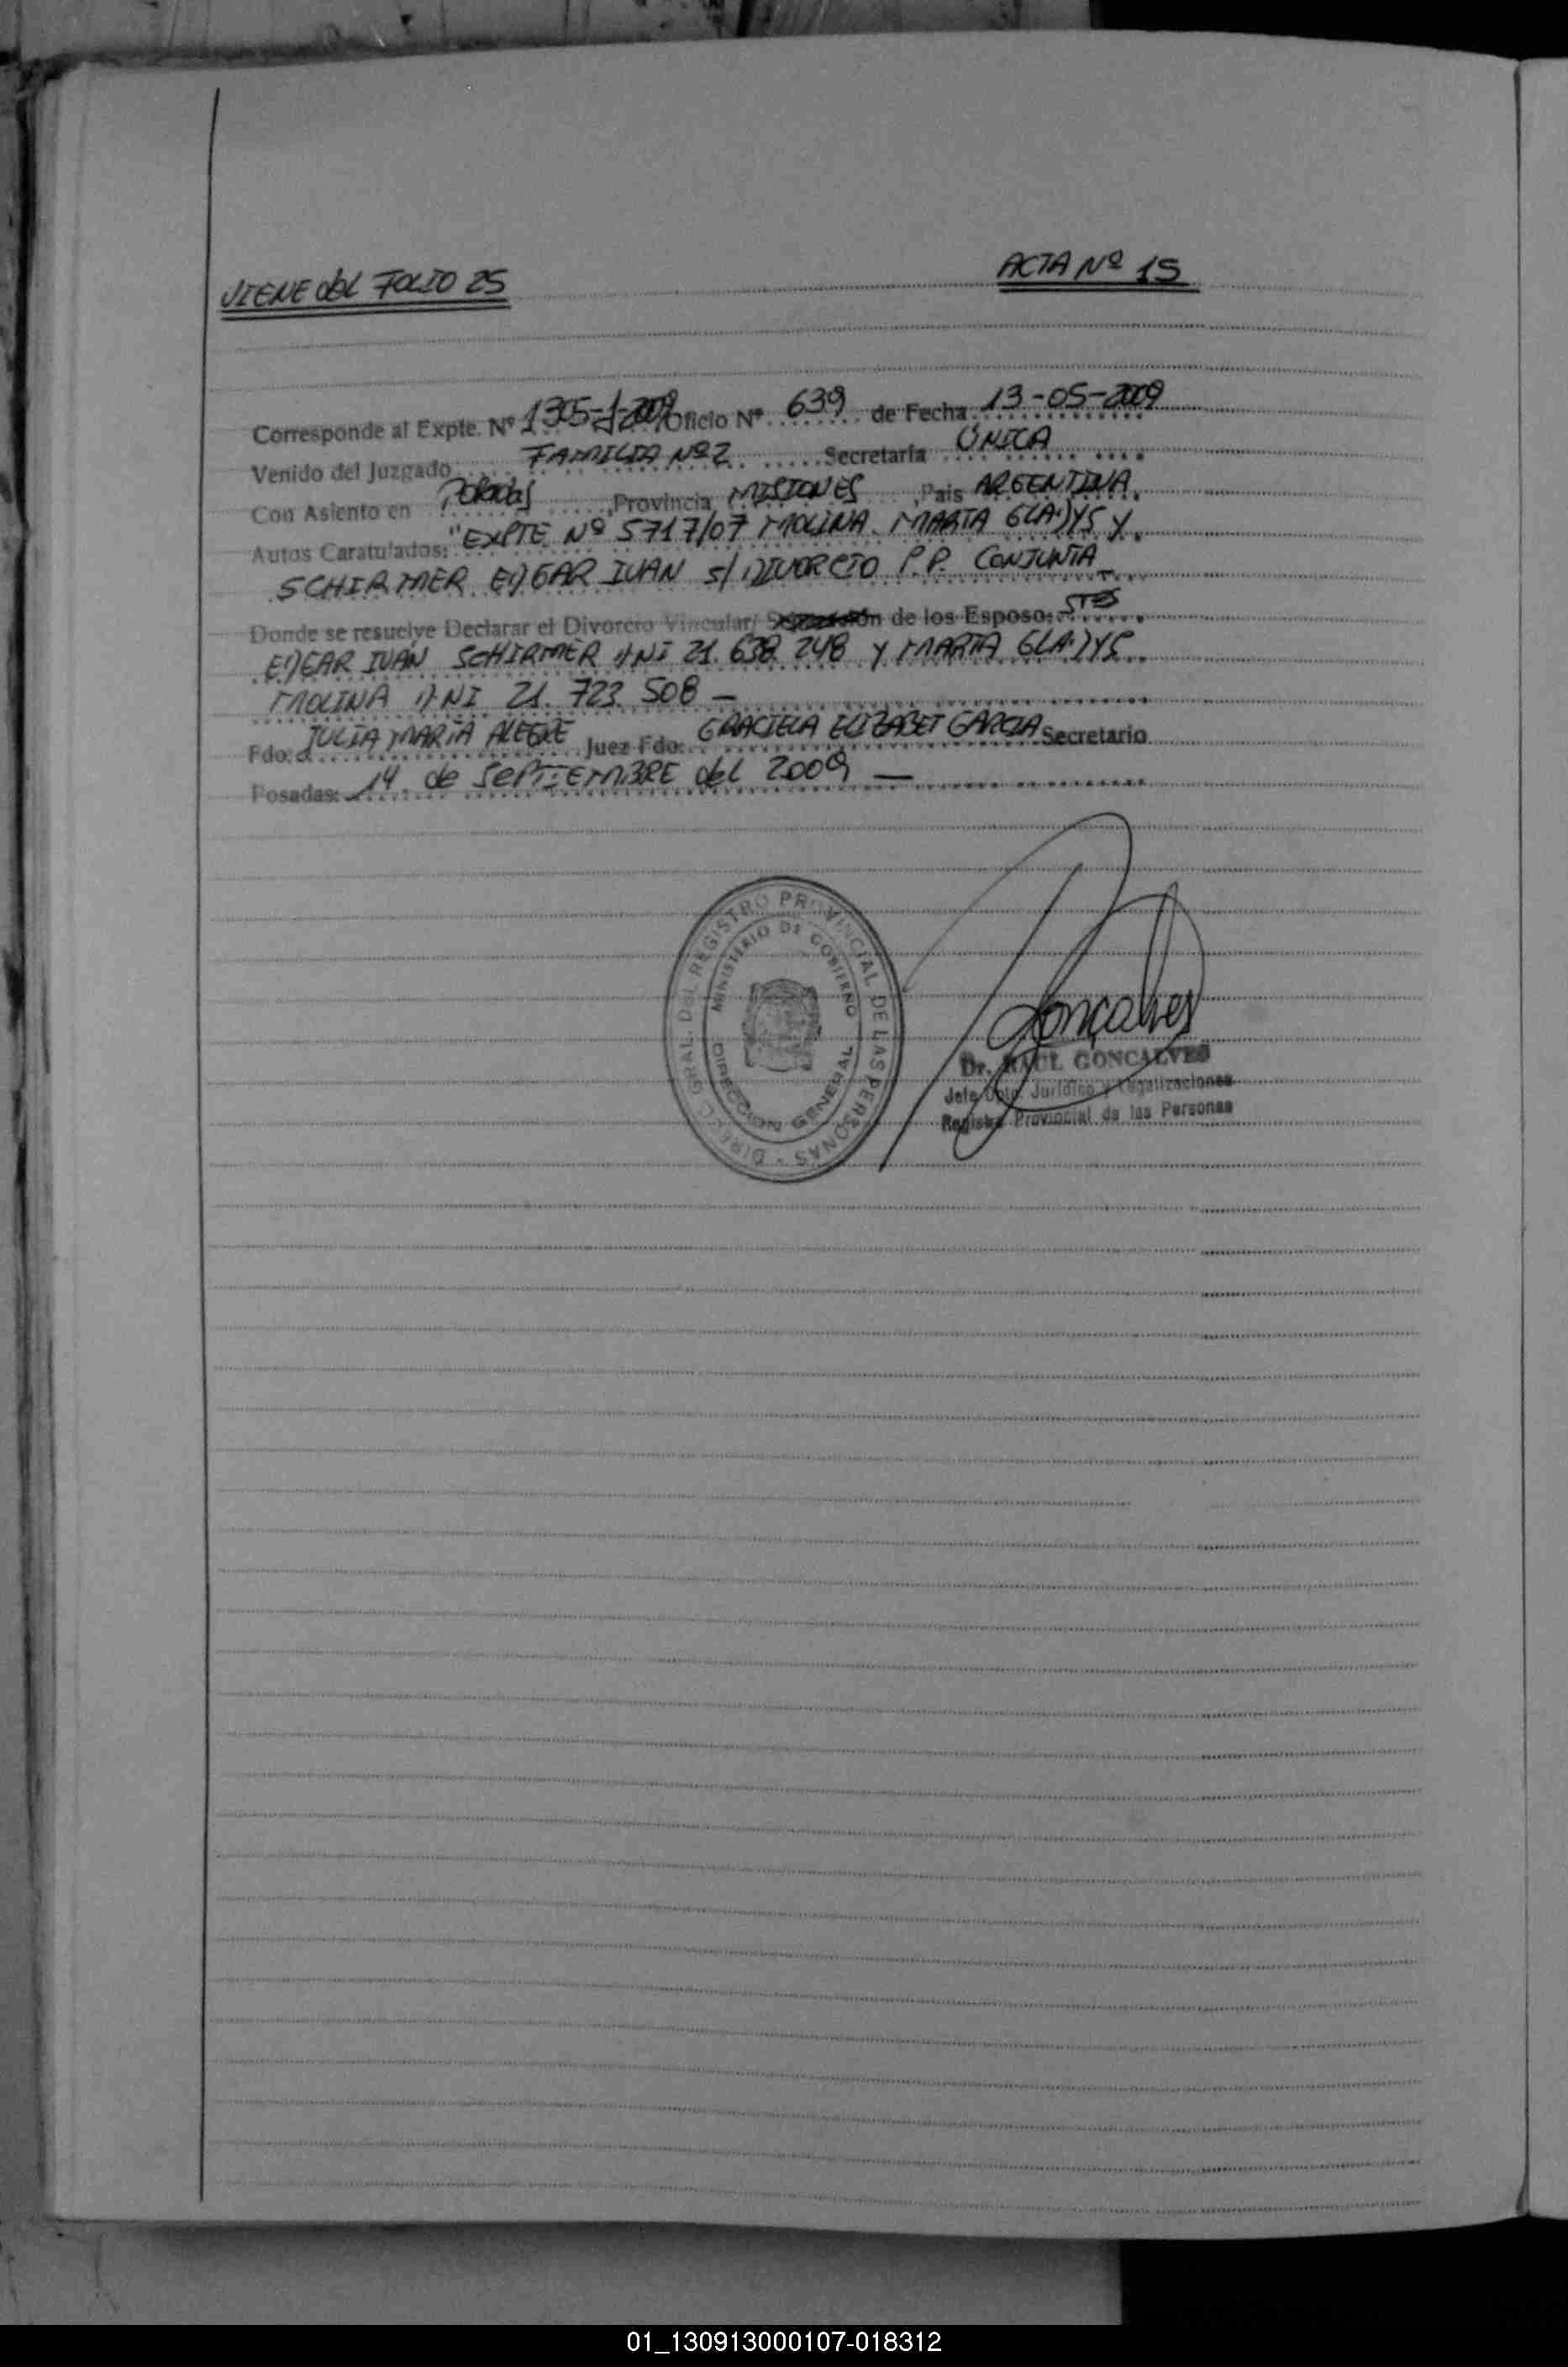 VIENE del FOLIO 25
ACTA Nº 15
Corresponde al Expte. Nº 1305-J-2009 Oficio Nº 639 de Fecha 13-05-2009
Venido del Juzgado FAMILIA Nº 2 Secretaría ÚNICA
Con Asiento en Posadas, Provincia MISIONES, Pais ARGENTINA.
Autos Caratulados: "EXPTE Nº 5717/07 MOLINA MARTA GLADYS Y
SCHIRMER EDGAR IVAN s/ DIVORCIO P.P. CONJUNTA
Donde se resuelve Declarar el Divorcio Vincular/ de los Esposo: STES
EDGAR IVÁN SCHIRMER DNI 21.638.248 Y MARTA GLADYS
MOLINA DNI 21.723.508 -
Fdo: JULIA MARÍA ALEGRE Juez Fdo: GRACIELA ELIZABET GARCIA Secretario
Posadas: 14 de SEPTIEMBRE del 2009 —
DIREC. GRAL. DEL REGISTRO PROVINCIAL DE LAS PERSONAS
MINISTERIO DE GOBIERNO
DIRECCION GENERAL
Goncalves
Dr. RAUL GONCALVES
Jefe Dpto. Jurídico y Legalizaciones
Registro Provincial de las Personas
01_130913000107-018312